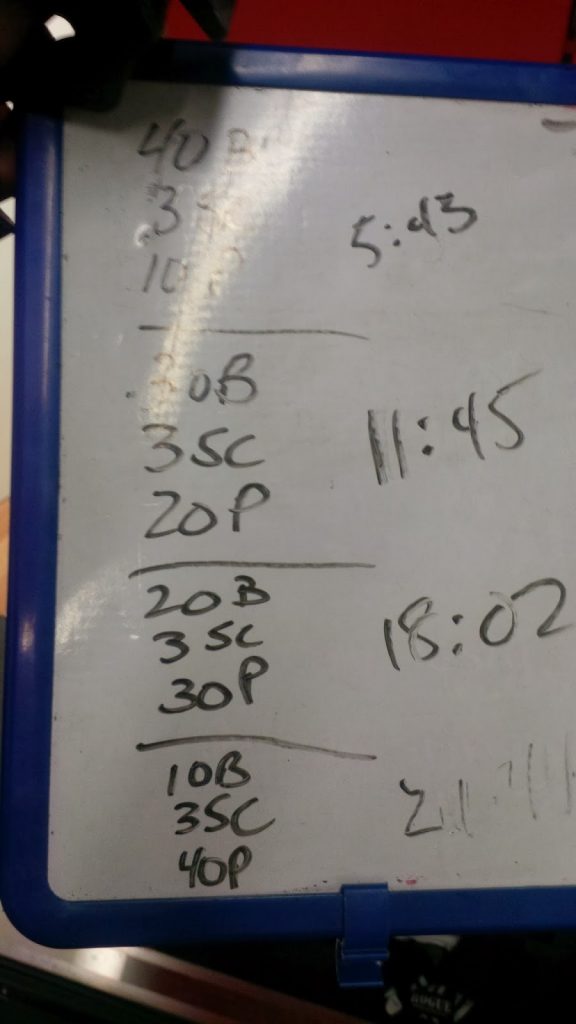 40 B
3 SC
10 P
5:43
30B
3 SC
20P
11:45
20B
3 SC
30P
18:02
10B
3SC
40P
ROGUE